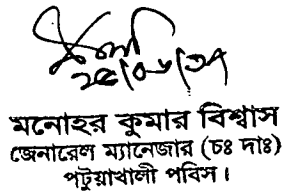 মনোহর কুমার বিশ্বাস
জেনারেল ম্যানেজার (চঃ দাঃ)
পটুয়াখালী পবিস।